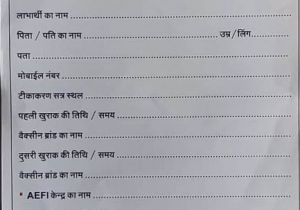 लाभार्थी का नाम ........................................
पिता / पति का नाम ........................ उम्र / लिंग............
पता ........................................
मोबाईल नंबर ........................................
टीकाकरण सत्र स्थल ........................................
पहली खुराक की तिथि / समय ........................................
वैक्सीन ब्रांड का नाम ........................................
दुसरी खुराक की तिथि / समय ........................................
वैक्सीन ब्रांड का नाम ........................................
* AEFI केन्द्र का नाम ........................................